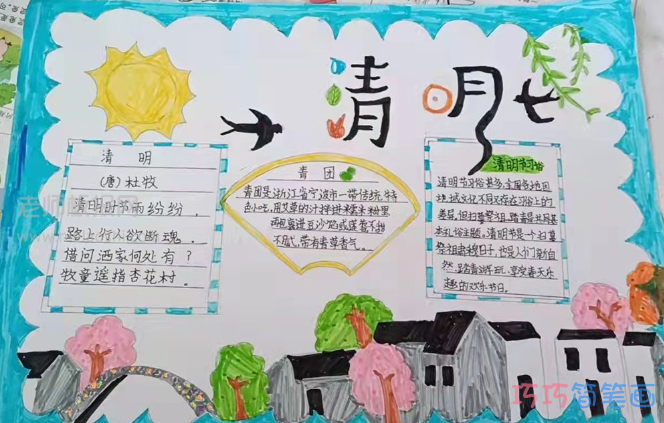 清明
清 明
（唐）杜牧
清明时节雨纷纷，
路上行人欲断魂。
借问酒家何处有？
牧童遥指杏花村。
青团
青团是浙江省宁波市一带传统特
色小吃，用艾草的汁拌进糯米粉里
再包裹进豆沙馅或莲蓉不甜
不腻，带有清香气
清明习俗
清明节习俗甚多，全国各地因
地域文化不同又存在习俗上的
差异，但扫墓祭祖、踏青是共同基
本礼俗主题。清明节是一个扫墓
祭祖肃穆日子，也是人们亲近自
然、踏青游玩、享受春天乐
趣的欢乐节日。
巧巧简笔画